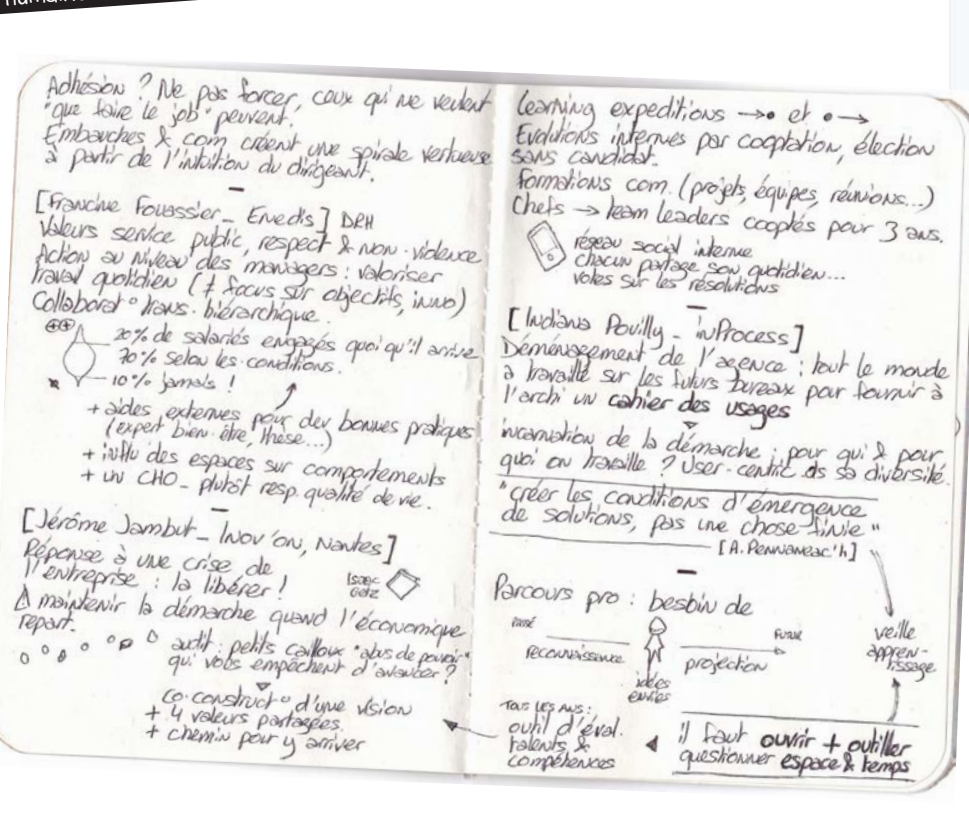 Adhésion ? Ne pas forcer, ceux qui ne veulent
"que faire le job" peuvent.
Embauches & com créent une spirale vertueuse
à partir de l'intuition du dirigeant.
[Francine Fouassier_ Enedis] DRH
Valeurs service public, respect & non-violence
Action au niveau des managers : valoriser
travail quotidien (≠ focus sur objectifs, inno)
Collaborat° trans-hiérarchique.
⊕⊕
20% de salariés engagés quoi qu'il arrive
70% selon les conditions.
10% jamais !
+ aides externes pour dev bonnes pratiques
(expert bien-être, thèse...)
+ influ des espaces sur comportements
+ un CHO_ plutôt resp. qualité de vie.
[Jérôme Jambut_ Inov'on, Nantes]
Réponse à une crise de
l'entreprise : la libérer !
Isaac
Getz
⚠ maintenir la démarche quand l'économique
repart.
audit : petits cailloux "abus de pouvoir"
qui vous empêchent d'avancer ?
co-construct° d'une vision
+ 4 valeurs partagées
+ chemin pour y arriver
Learning expeditions →• et •→
Evolutions internes par cooptation, élection
sans candidat.
Formations com. (projets, équipes, réunions...)
Chefs → team leaders cooptés pour 3 ans.
réseau social interne
chacun partage son quotidien...
votes sur les résolutions
[Indiana Pouilly_ inProcess]
Déménagement de l'agence : tout le monde
a travaillé sur les futurs bureaux pour fournir à
l'archi un cahier des usages
incarnation de la démarche : pour qui & pour
quoi on travaille ? User-centric ds sa diversité.
"créer les conditions d'émergence
de solutions, pas une chose finie"
[A. Pennaneac'h]
Parcours pro : besoin de
passé
reconnaissance
idées
envies
futur
projection
veille
appren-
tissage
Tous les ans :
outil d'éval.
talents &
compétences
il faut ouvrir + outiller
questionner espace & temps